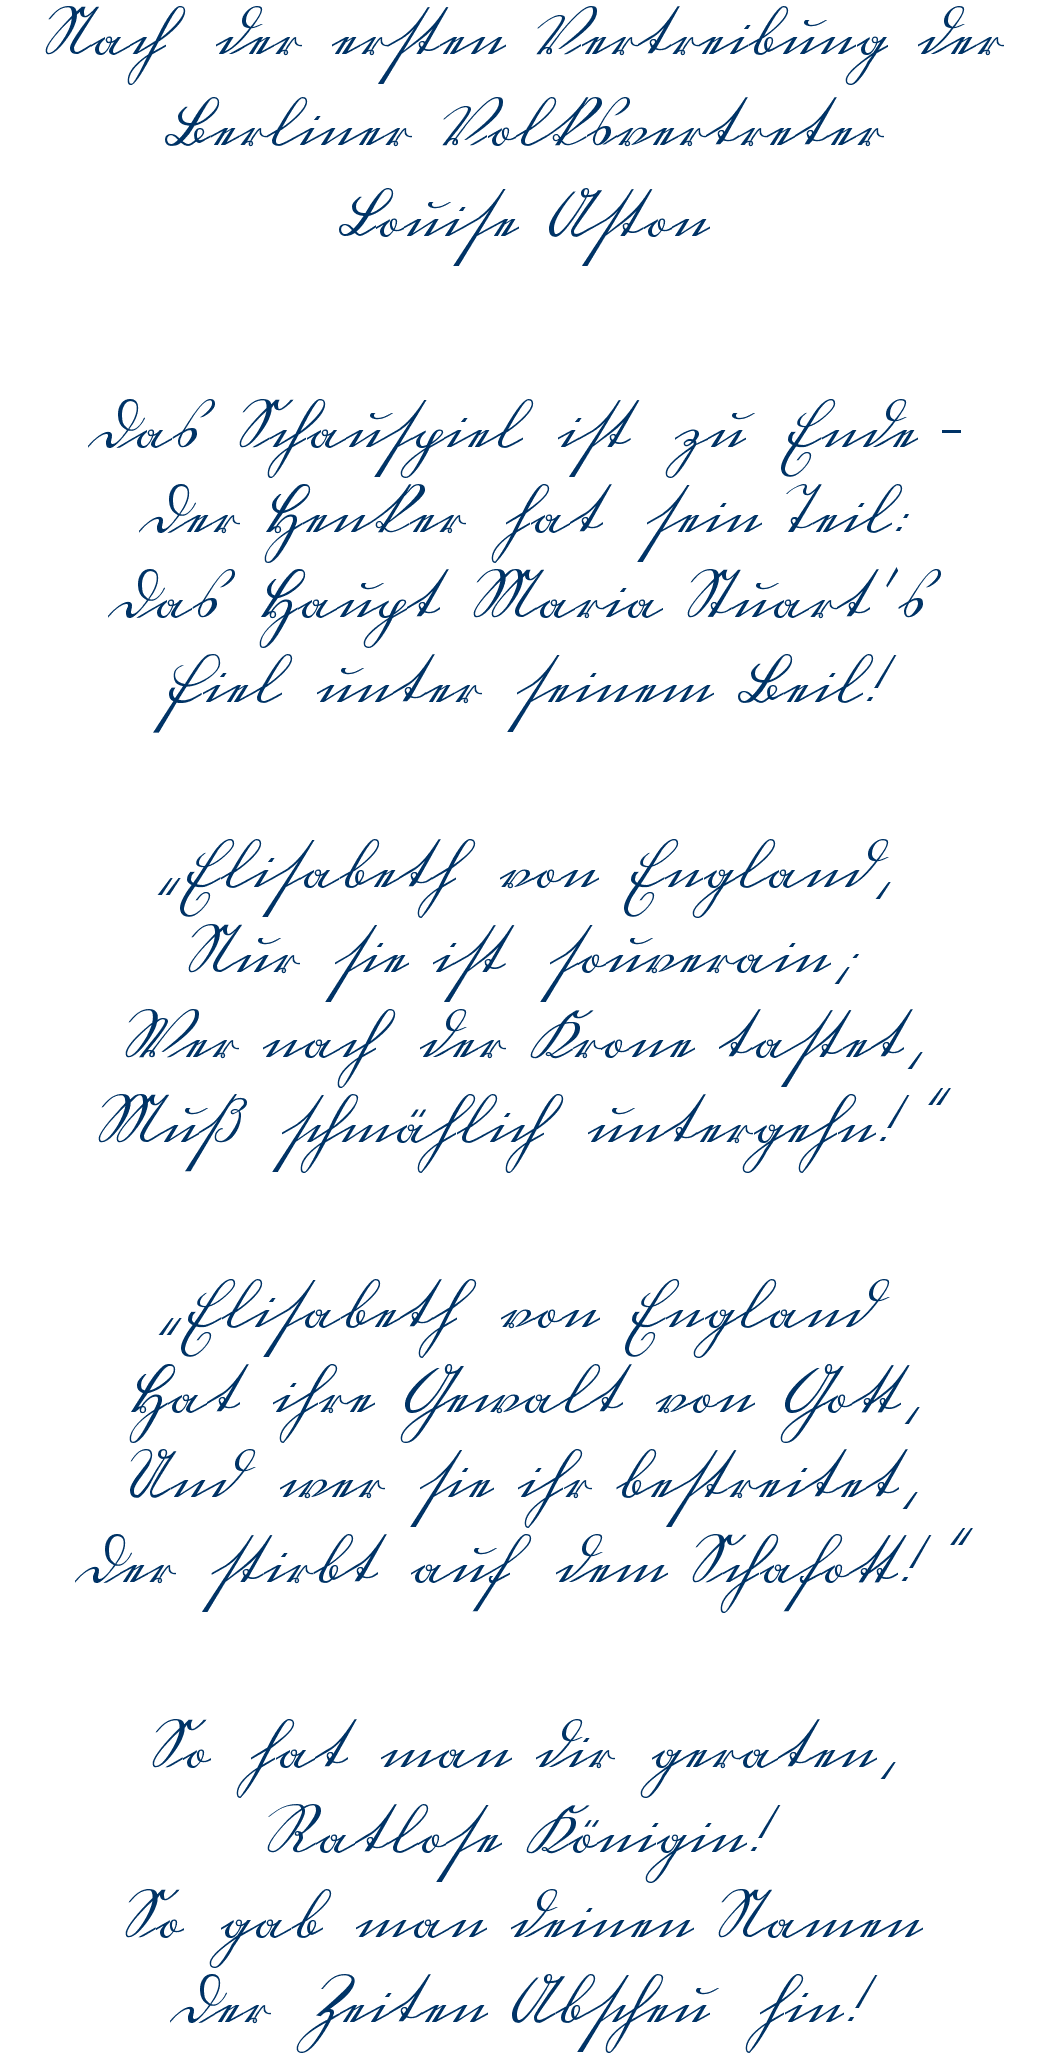 Nach der ersten Vertreibung der
Berliner Volksvertreter
Louise Aston
Das Schauspiel ist zu Ende -
Der Henker hat sein Teil:
Das Haupt Maria Stuart's
Fiel unter seinem Beil!
„Elisabeth von England,
Nur sie ist souverain;
Wer nach der Krone tastet,
Muß schmählich untergehn!"
„Elisabeth von England
Hat ihre Gewalt von Gott,
Und wer sie ihr bestreitet,
Der stirbt auf dem Schafott!"
So hat man dir geraten,
Ratlose Königin!
So gab man deinen Namen
Der Zeiten Abscheu hin!